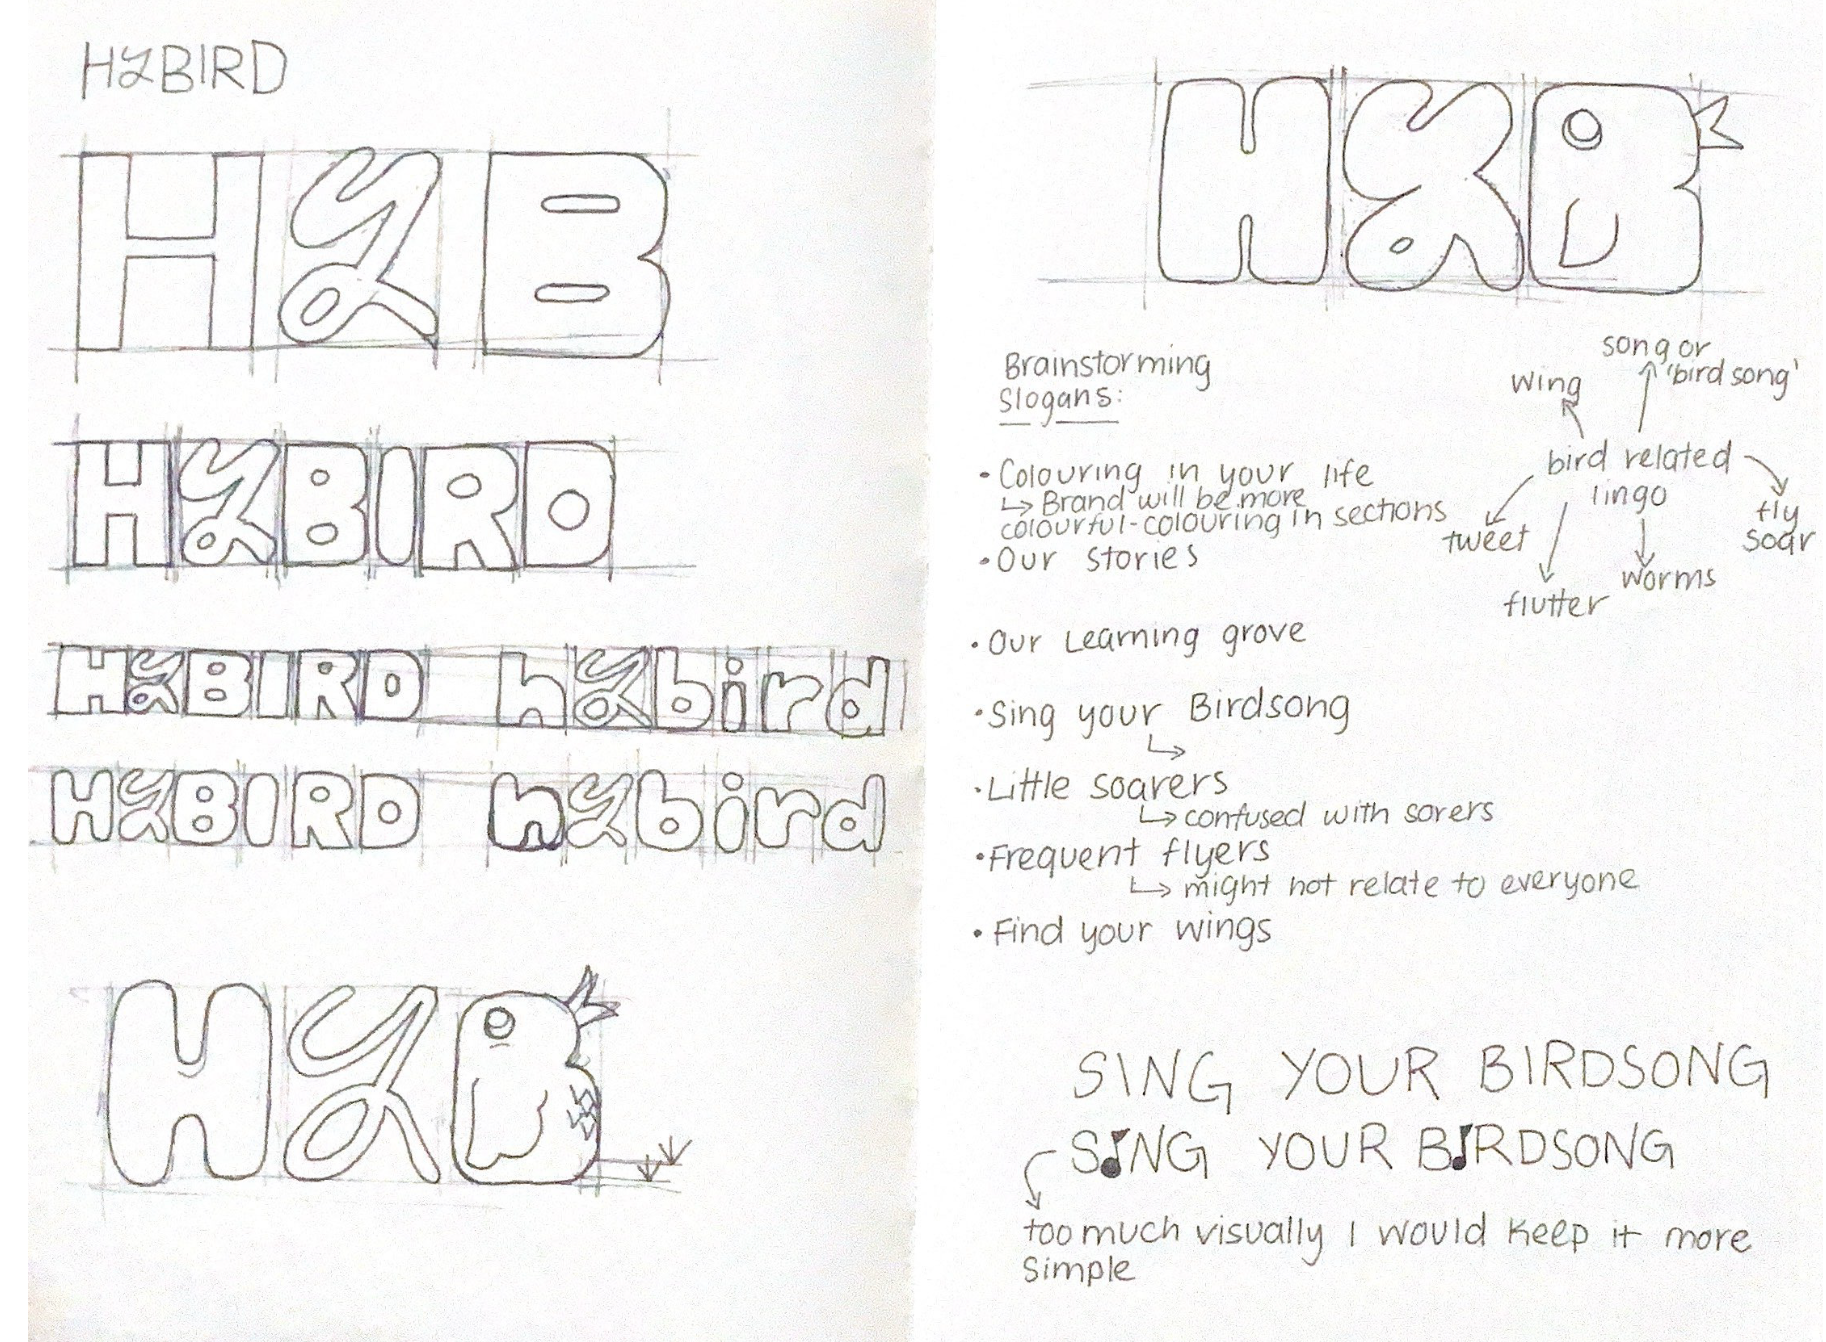 HYBIRD
HYB
HYBIRD
HYBIRD hybird
HYBIRD hybird
HYB
HYB
Brainstorming
Slogans:
• Colouring in your life
↳ Brand will be more
colourful-colouring in sections
• Our stories
• Our Learning grove
• Sing your Birdsong
↳
• Little soarers
↳ confused with sorers
• Frequent flyers
↳ might not relate to everyone
• Find your wings
song or
'bird song'
wing
bird related
lingo
fly
soar
tweet
worms
flutter
SING YOUR BIRDSONG
S♪NG YOUR B♪RDSONG
too much visually I would keep it more
simple